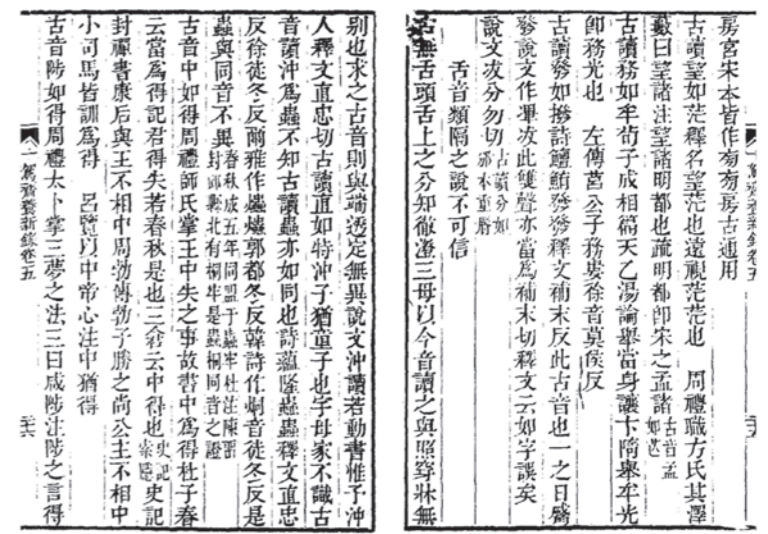 房宮宋本皆作旁旁房古通用
古讀望如茫釋名望茫也遠視茫茫也　周禮職方氏其澤
藪曰望諸注望諸明都也疏明都卽宋之孟諸古音孟如芒
古讀務如牟荀子成相篇天乙湯論舉當身讓卞隨舉牟光
卽務光也　左傳莒公子務婁徐音莫侯反
古讀發如撥詩鱣鮪發發釋文補末反此古音也一之日觱
發說文作畢犮此雙聲亦當爲補末切釋文云如字誤矣
說文犮分勿切古讀分如邠本重脣
舌音類隔之說不可信
古無舌頭舌上之分知徹澄三母以今音讀之與照穿牀無
十駕齋養新錄卷五
別也求之古音則與端透定無異說文沖讀若動書惟予沖
人釋文直忠切古讀直如特沖子猶童子也字母家不識古
音讀沖爲蟲不知古讀蟲亦如同也詩蘊隆蟲蟲釋文直忠
反徐徒冬反爾雅作爞爞郭都冬反韓詩作烔音徒冬反是
蟲與同音不異春秋成五年同盟于蟲牢杜注陳留封邱縣北有桐牢是蟲桐同音之證
古音中如得周禮師氏掌王中失之事故書中爲得杜子春
云當爲得記君得失若春秋是也三倉云中得也史記索隱史記
封禪書康后與王不相中周勃傳勃子勝之尚公主不相中
小司馬皆訓爲得　呂覽以中帝心注中猶得
古音陟如得周禮太卜掌三夢之法三曰咸陟注陟之言得
十駕齋養新錄卷五